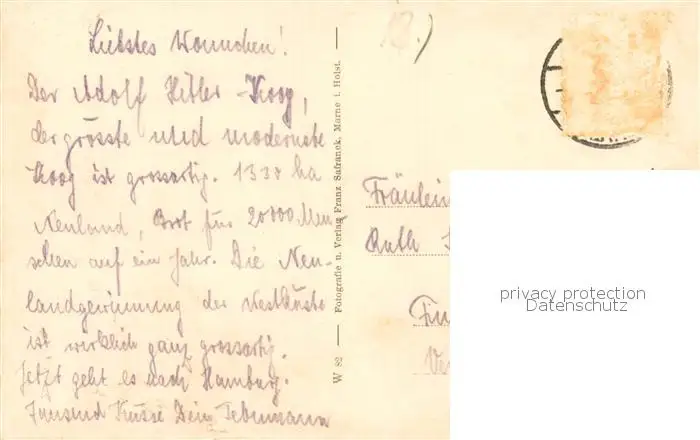 Liebstes Wonnchen!
Der Adolf Hitler-Koog,
der grösste und modernste
Koog ist grossartig. 1338 ha
Neuland, Brot für 20000 Men-
schen auf ein Jahr. Die Neu-
landgewinnung der Westküste
ist wirklich ganz grossartig.
Jetzt geht es nach Hamburg.
Tausend Küsse Dein
W 82 — Fotografie u. Verlag Franz Safranek, Marne i. Holst. —
Fräulein
Ruth
privacy protection
Datenschutz